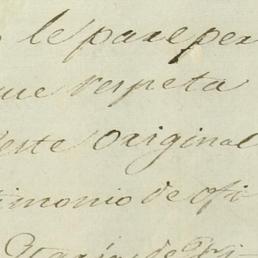 le pase per
que respeta
este original
timonio de ofi
de